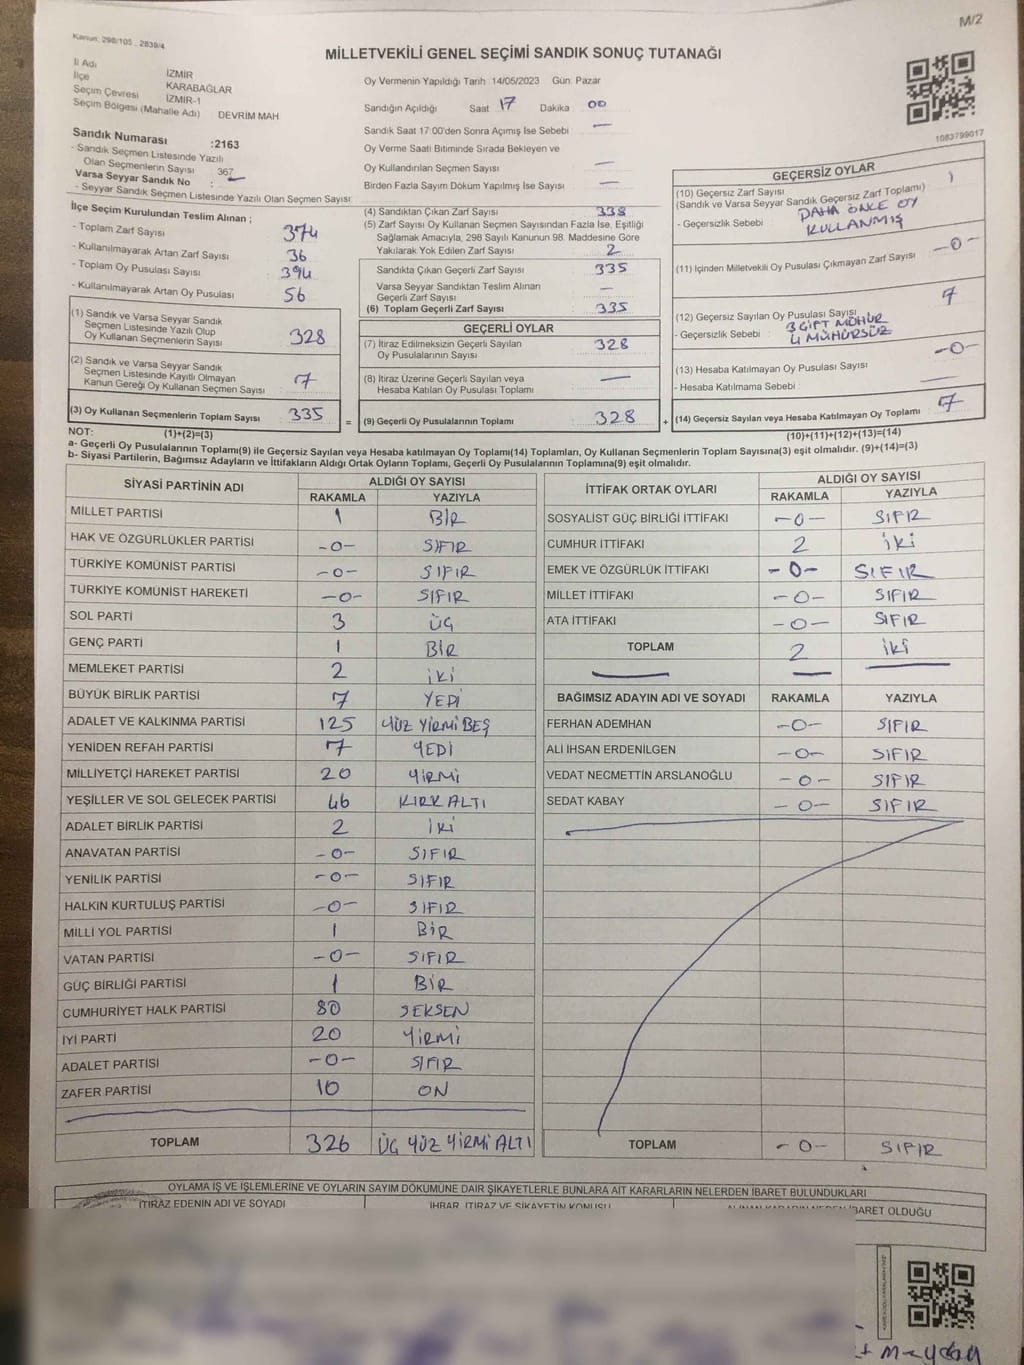 M/2
Kanun: 298/105 _ 2839/4
MİLLETVEKİLİ GENEL SEÇİMİ SANDIK SONUÇ TUTANAĞI
İl Adı İZMİR
İlçe KARABAĞLAR
Seçim Çevresi İZMİR-1
Seçim Bölgesi (Mahalle Adı) : DEVRİM MAH
Sandık Numarası :2163
- Sandık Seçmen Listesinde Yazılı
Olan Seçmenlerin Sayısı 367
Varsa Seyyar Sandık No : —
- Seyyar Sandık Seçmen Listesinde Yazılı Olan Seçmen Sayısı:
Oy Vermenin Yapıldığı Tarih :14/05/2023 Gün: Pazar
Sandığın Açıldığı Saat 17 Dakika 00
Sandık Saat 17:00'den Sonra Açımış İse Sebebi —
Oy Verme Saati Bitiminde Sırada Bekleyen ve
Oy Kullandırılan Seçmen Sayısı —
Birden Fazla Sayım Döküm Yapılmış İse Sayısı —
1083799017
İlçe Seçim Kurulundan Teslim Alınan ;
- Toplam Zarf Sayısı 374
- Kullanılmayarak Artan Zarf Sayısı 36
- Toplam Oy Pusulası Sayısı 394
- Kullanılmayarak Artan Oy Pusulası 56
(1) Sandık ve Varsa Seyyar Sandık
Seçmen Listesinde Yazılı Olup
Oy Kullanan Seçmenlerin Sayısı 328
(2) Sandık ve Varsa Seyyar Sandık
Seçmen Listesinde Kayıtlı Olmayan
Kanun Gereği Oy Kullanan Seçmen Sayısı 7
(3) Oy Kullanan Seçmenlerin Toplam Sayısı 335
(4) Sandıktan Çıkan Zarf Sayısı 338
(5) Zarf Sayısı Oy Kullanan Seçmen Sayısından Fazla İse, Eşitliği
Sağlamak Amacıyla, 298 Sayılı Kanunun 98. Maddesine Göre
Yakılarak Yok Edilen Zarf Sayısı 2
Sandıkta Çıkan Geçerli Zarf Sayısı 335
Varsa Seyyar Sandıktan Teslim Alınan
Geçerli Zarf Sayısı —
(6) Toplam Geçerli Zarf Sayısı 335
GEÇERLİ OYLAR
(7) İtiraz Edilmeksizin Geçerli Sayılan
Oy Pusulalarının Sayısı 328
(8) İtiraz Üzerine Geçerli Sayılan veya
Hesaba Katılan Oy Pusulası Toplamı —
= (9) Geçerli Oy Pusulalarının Toplamı 328 +
GEÇERSİZ OYLAR
(10) Geçersiz Zarf Sayısı 1
(Sandık ve Varsa Seyyar Sandık Geçersiz Zarf Toplamı)
- Geçersizlik Sebebi : DAHA ÖNCE OY
KULLANMIŞ
(11) İçinden Milletvekili Oy Pusulası Çıkmayan Zarf Sayısı -0-
(12) Geçersiz Sayılan Oy Pusulası Sayısı 7
- Geçersizlik Sebebi : 3 ÇİFT MÜHÜR
4 MÜHÜRSÜZ
(13) Hesaba Katılmayan Oy Pusulası Sayısı -0-
- Hesaba Katılmama Sebebi : —
(14) Geçersiz Sayılan veya Hesaba Katılmayan Oy Toplamı 7
NOT: (1)+(2)=(3)
(10)+(11)+(12)+(13)=(14)
a- Geçerli Oy Pusulalarının Toplamı(9) ile Geçersiz Sayılan veya Hesaba katılmayan Oy Toplamı(14) Toplamları, Oy Kullanan Seçmenlerin Toplam Sayısına(3) eşit olmalıdır. (9)+(14)=(3)
b- Siyasi Partilerin, Bağımsız Adayların ve İttifakların Aldığı Ortak Oyların Toplamı, Geçerli Oy Pusulalarının Toplamına(9) eşit olmalıdır.
SİYASİ PARTİNİN ADI ALDIĞI OY SAYISI
RAKAMLA YAZIYLA
MİLLET PARTİSİ 1 BİR
HAK VE ÖZGÜRLÜKLER PARTİSİ -0- SIFIR
TÜRKİYE KOMÜNİST PARTİSİ -0- SIFIR
TÜRKİYE KOMÜNİST HAREKETİ -0- SIFIR
SOL PARTİ 3 ÜÇ
GENÇ PARTİ 1 BİR
MEMLEKET PARTİSİ 2 İKİ
BÜYÜK BİRLİK PARTİSİ 7 YEDİ
ADALET VE KALKINMA PARTİSİ 125 YÜZ YİRMİ BEŞ
YENİDEN REFAH PARTİSİ 7 YEDİ
MİLLİYETÇİ HAREKET PARTİSİ 20 YİRMİ
YEŞİLLER VE SOL GELECEK PARTİSİ 46 KIRK ALTI
ADALET BİRLİK PARTİSİ 2 İKİ
ANAVATAN PARTİSİ -0- SIFIR
YENİLİK PARTİSİ -0- SIFIR
HALKIN KURTULUŞ PARTİSİ -0- SIFIR
MİLLİ YOL PARTİSİ 1 BİR
VATAN PARTİSİ -0- SIFIR
GÜÇ BİRLİĞİ PARTİSİ 1 BİR
CUMHURİYET HALK PARTİSİ 80 SEKSEN
İYİ PARTİ 20 YİRMİ
ADALET PARTİSİ -0- SIFIR
ZAFER PARTİSİ 10 ON
TOPLAM 326 ÜÇ YÜZ YİRMİ ALTI
İTTİFAK ORTAK OYLARI ALDIĞI OY SAYISI
RAKAMLA YAZIYLA
SOSYALİST GÜÇ BİRLİĞİ İTTİFAKI -0- SIFIR
CUMHUR İTTİFAKI 2 İKİ
EMEK VE ÖZGÜRLÜK İTTİFAKI -0- SIFIR
MİLLET İTTİFAKI -0- SIFIR
ATA İTTİFAKI -0- SIFIR
TOPLAM 2 İKİ
BAĞIMSIZ ADAYIN ADI VE SOYADI RAKAMLA YAZIYLA
FERHAN ADEMHAN -0- SIFIR
ALİ İHSAN ERDENİLGEN -0- SIFIR
VEDAT NECMETTİN ARSLANOĞLU -0- SIFIR
SEDAT KABAY -0- SIFIR
TOPLAM -0- SIFIR
OYLAMA İŞ VE İŞLEMLERİNE VE OYLARIN SAYIM DÖKÜMÜNE DAİR ŞİKAYETLERLE BUNLARA AİT KARARLARIN NELERDEN İBARET BULUNDUKLARI
İTİRAZ EDENİN ADI VE SOYADI İHBAR, İTİRAZ VE ŞİKAYETİN KONUSU İBARET OLDUĞU